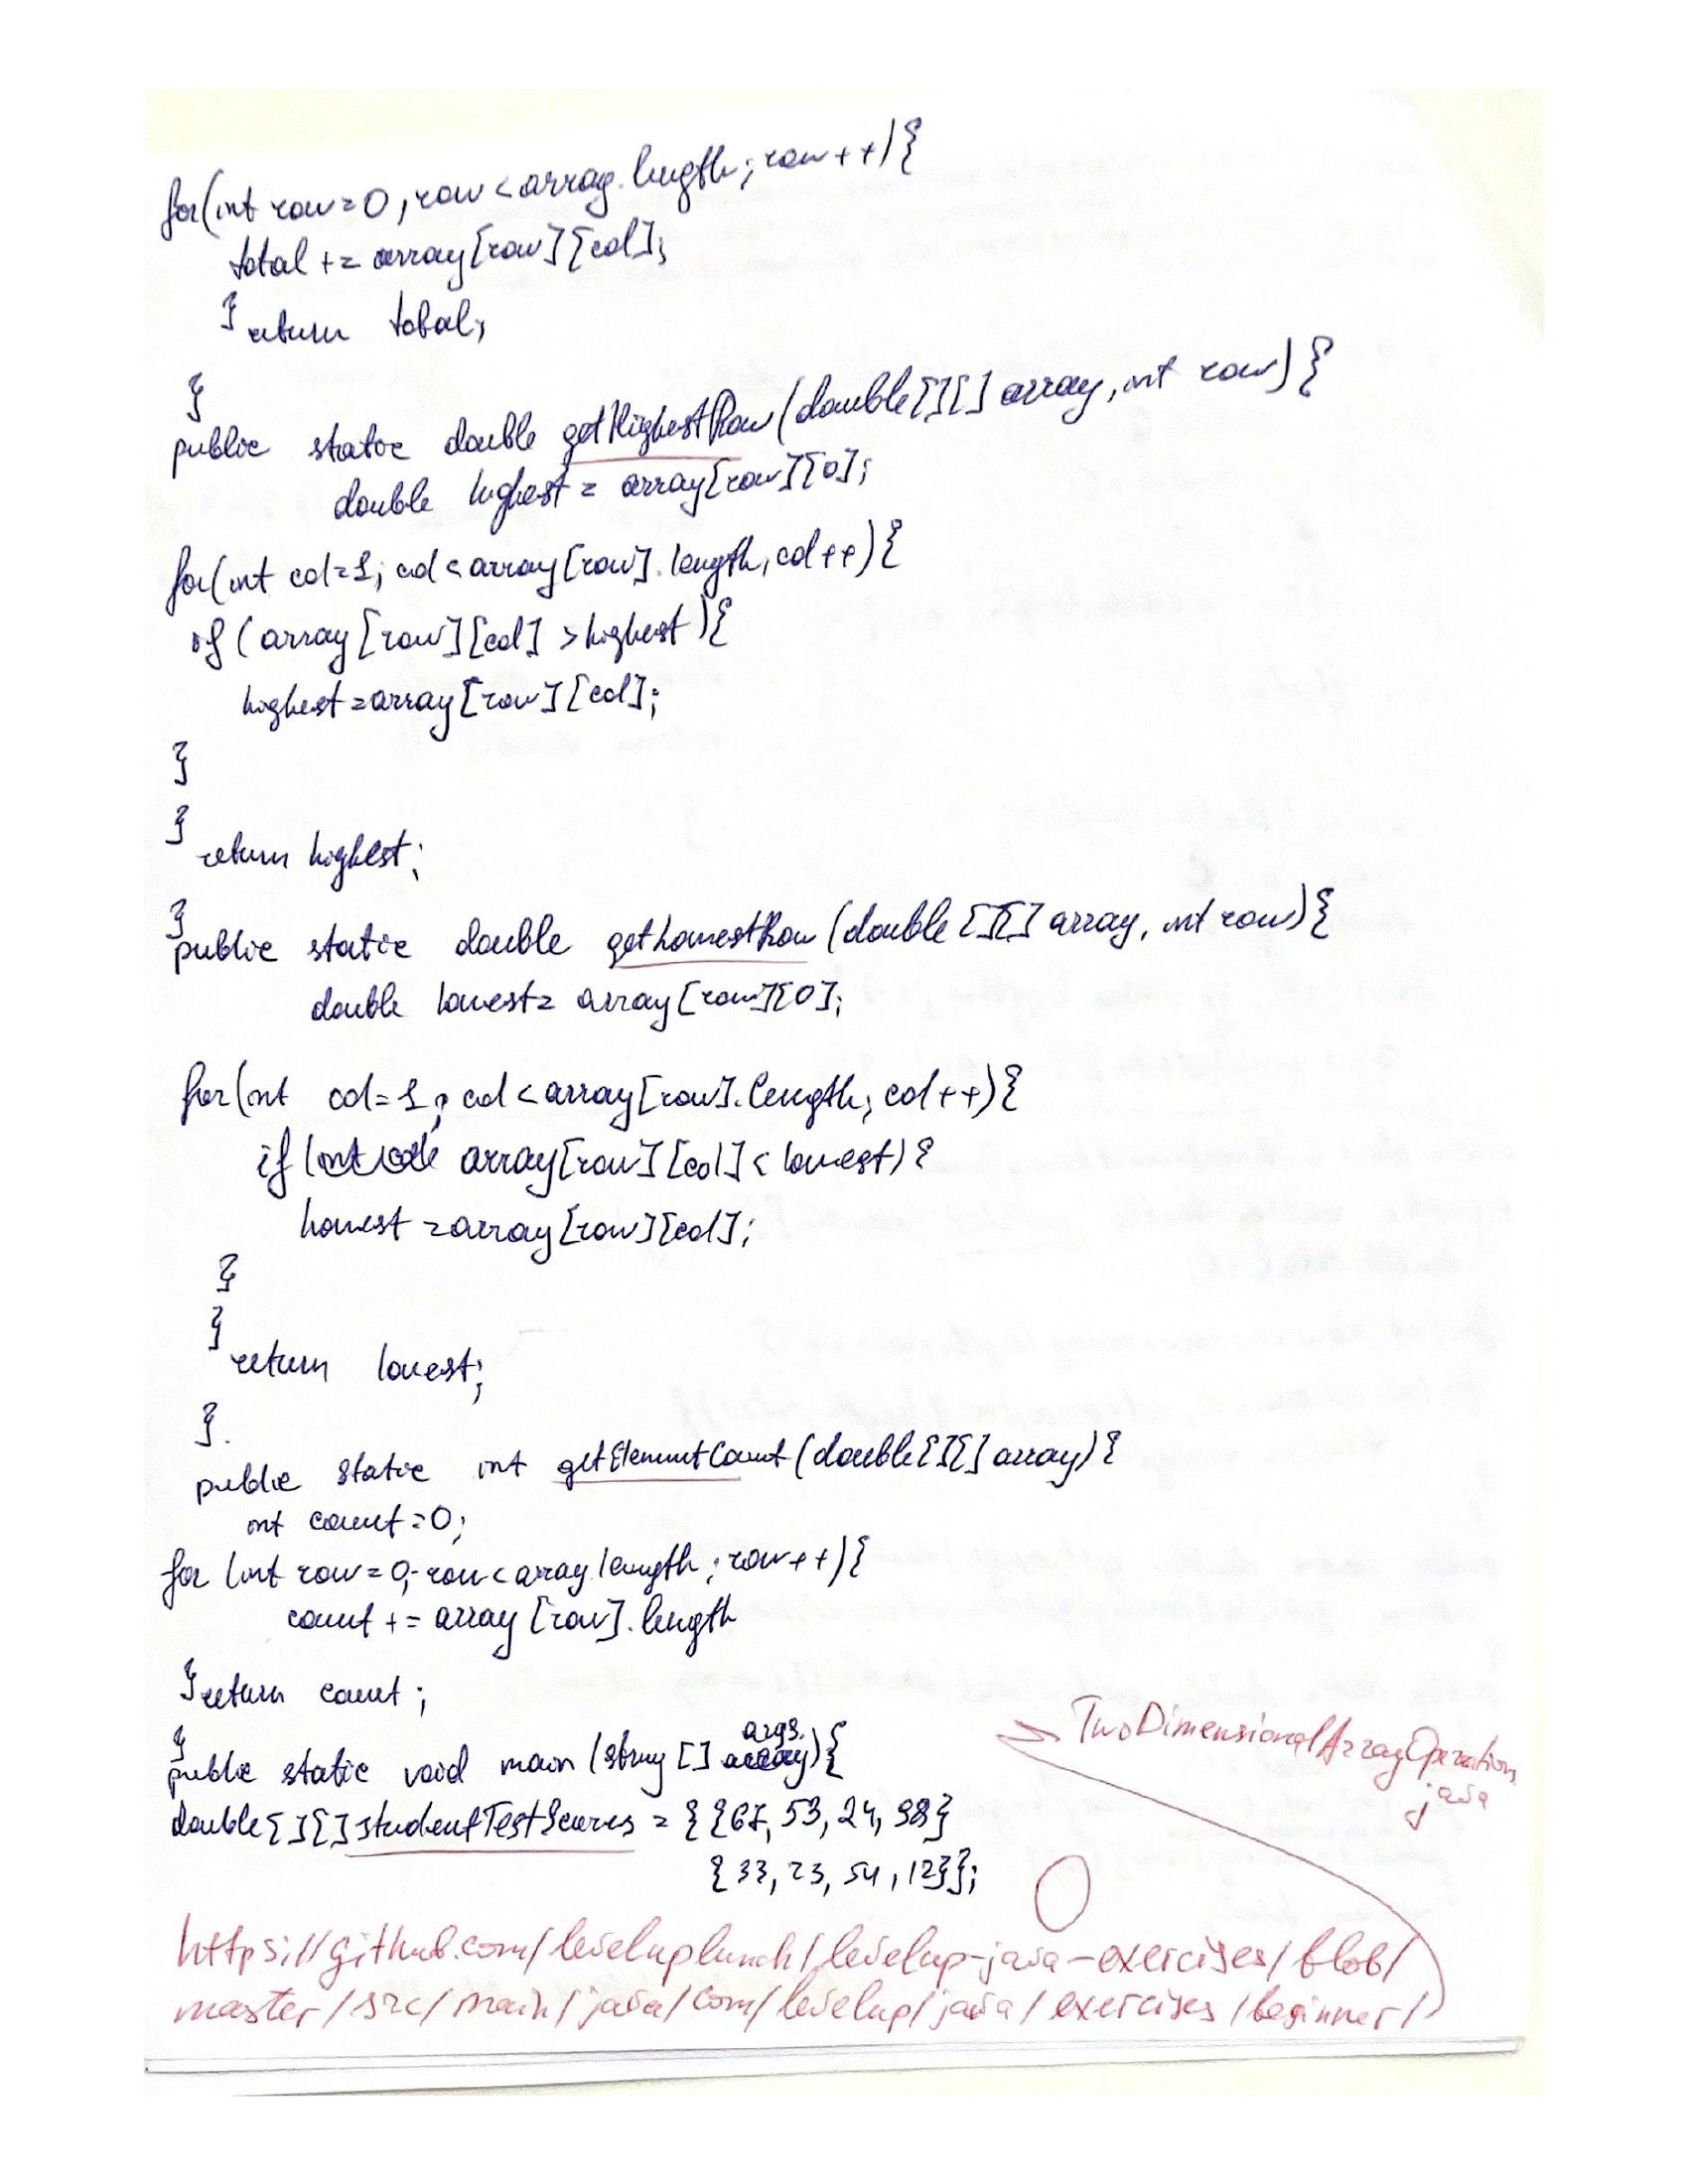 for(int row=0,row<array.length;row++){
total += array[row][col];
} return total;
}
public static double getHighestRow(double[][] array,int row){
double highest = array[row][0];
for(int col=1; col<array[row].length,col++){
if (array[row][col] >highest){
highest=array[row][col];
}
}
return highest;
}
public static double getLowestRow(double[][] array, int row){
double lowest= array[row][0];
for(int col=1; col<array[row].length; col++){
if ( array[row][col]< lowest){
lowest =array[row][col];
}
}
return lowest;
}.
public static int getElementCount(double[][] array){
int count=0;
for (int row=0; row<array.length;row++){
count += array[row].length
} return count;
}
public static void main (string [] args.){
double[][] studentTestScores = {{67, 53, 24, 98}
{33, 23, 54, 12}};
TwoDimensionalArrayOperations
java
https://github.com/leveluplunch/levelup-java-exercises/blob/
master/src/main/java/com/levelup/java/exercises/beginner/